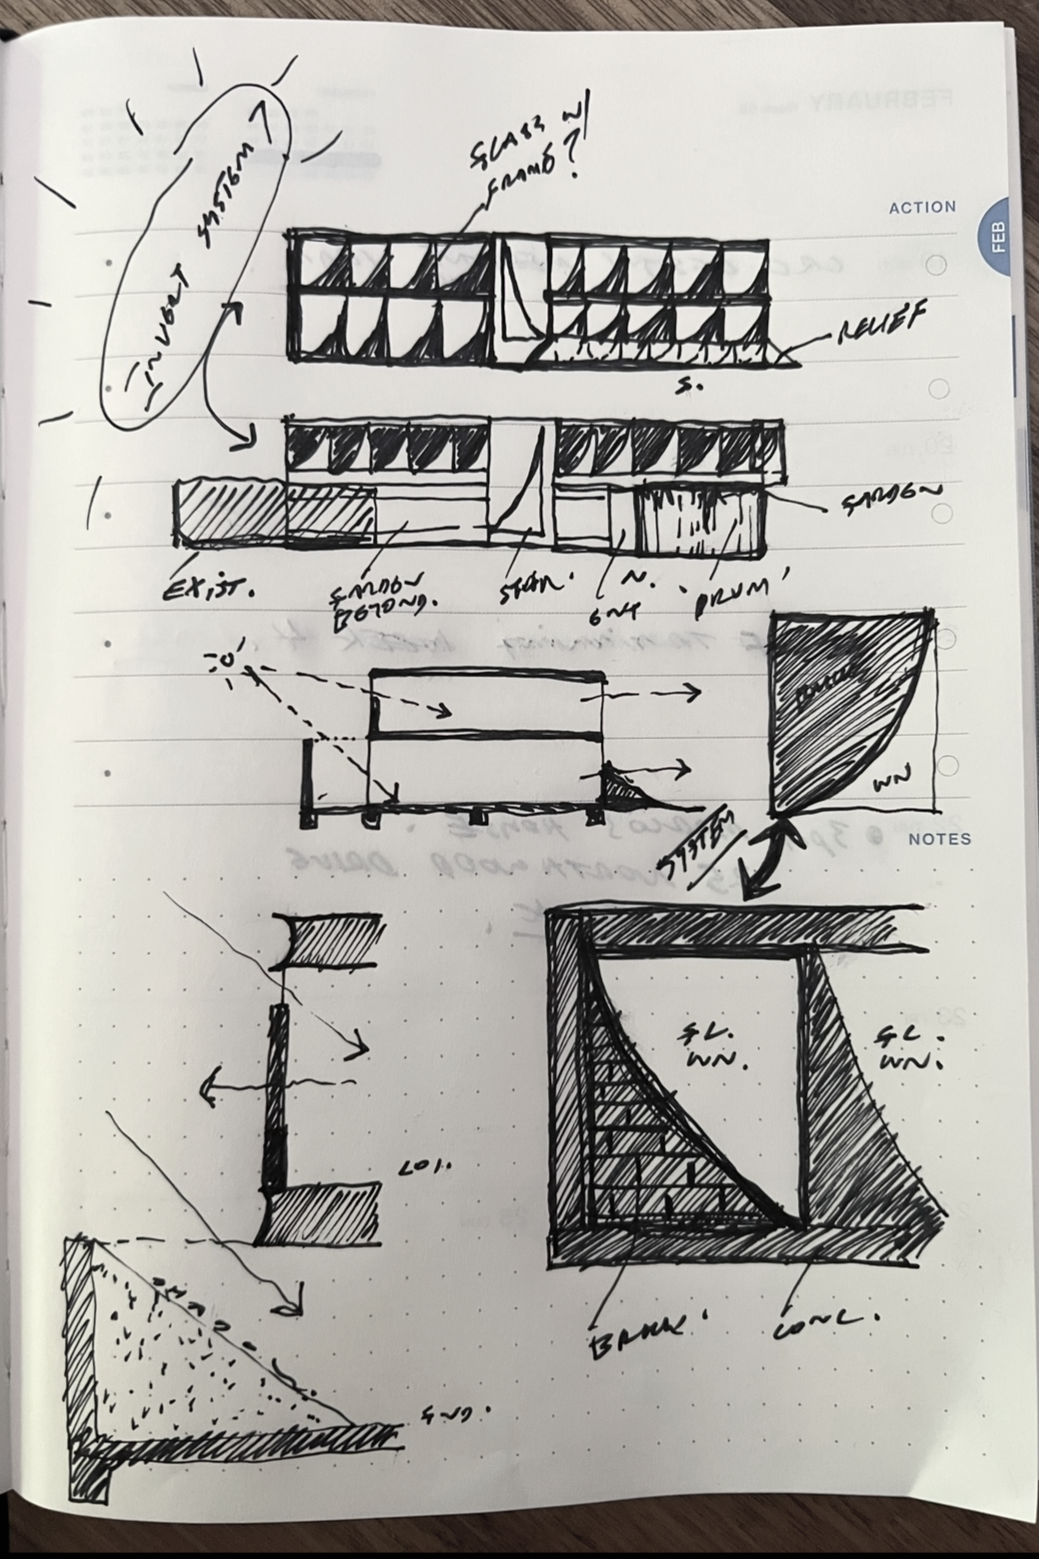 ACTION
FEB
INVERT SYSTEM
GLASS W/
FRAME?
RELIEF
S.
GARDEN
EXIST.
GARDEN
BEYOND.
STAIR.
N.
ENT
'DRUM'
WN
SYSTEM
NOTES
GL.
WN.
GL.
WN.
LO1.
BRICK.
CONC.
GND.